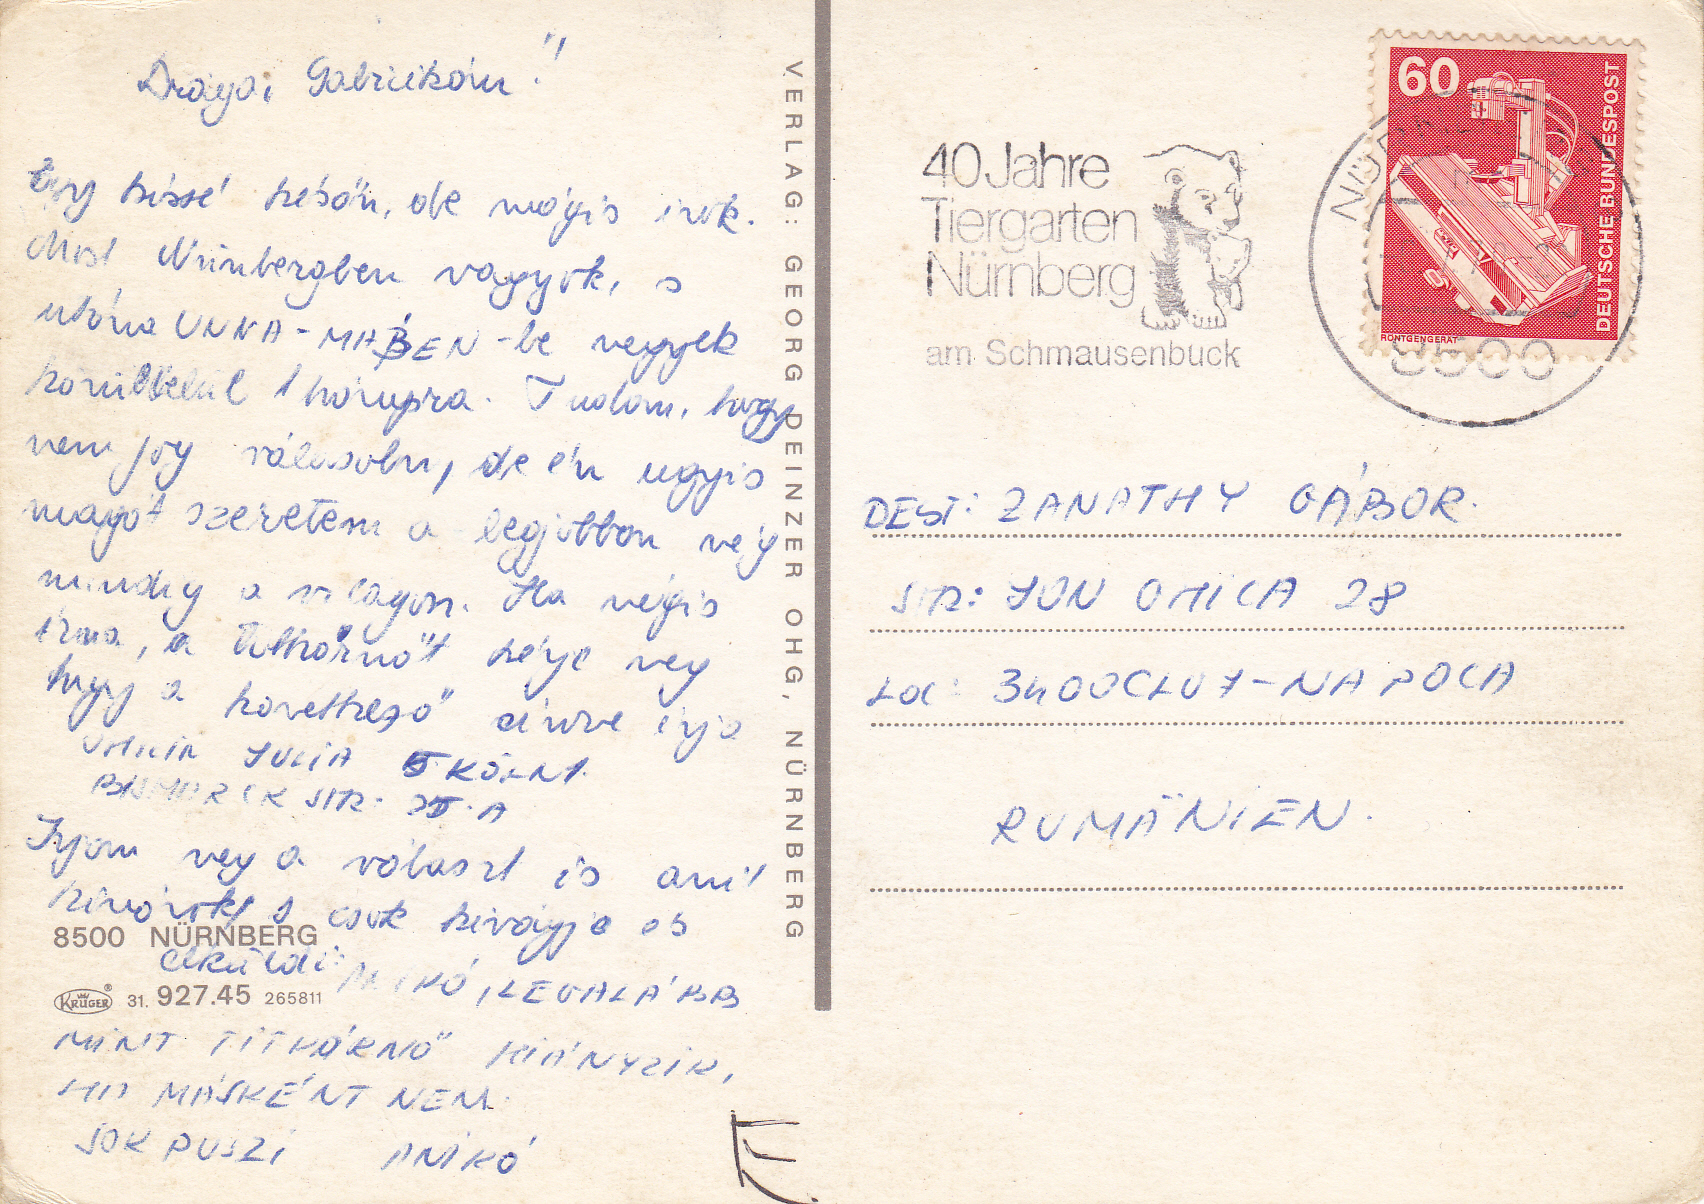 Drága Gabricikám!!
Egy kissé késön, de mégis irok.
Most Nürnbergben vagyok, s
utána UNNA-MAßEN-be megyek
körülbelül 1 hónapra. Tudom, hogy
nem fog válaszolni, de én ugyis
magát szeretem a legjobban még
mindig a világon. Ha mégis
irna, a titkárnőt kérje meg
hogy a következő cimre irja
JULIA 5 KÖLN 1.
STR. A
Irjam meg a választ is amit
kivánok, s csak kivágja és
elküldi: ANIKÓ, LEGALÁBB
MINT TITKÁRNŐ HIÁNYZIK,
HA MÁSKÉNT NEM.
SOK PUSZI ANIKÓ
8500 NÜRNBERG
KRÜGER® 31. 927.45 265811
VERLAG: GEORG DEINZER OHG, NÜRNBERG
40 Jahre
Tiergarten
Nürnberg
am Schmausenbuck
60
DEUTSCHE BUNDESPOST
RÖNTGENGERÄT
8500
DEST: ZANATHY GÁBOR.
STR: ION OMICA 28
LOC: 3400 CLUJ-NAPOCA
RUMÄNIEN.